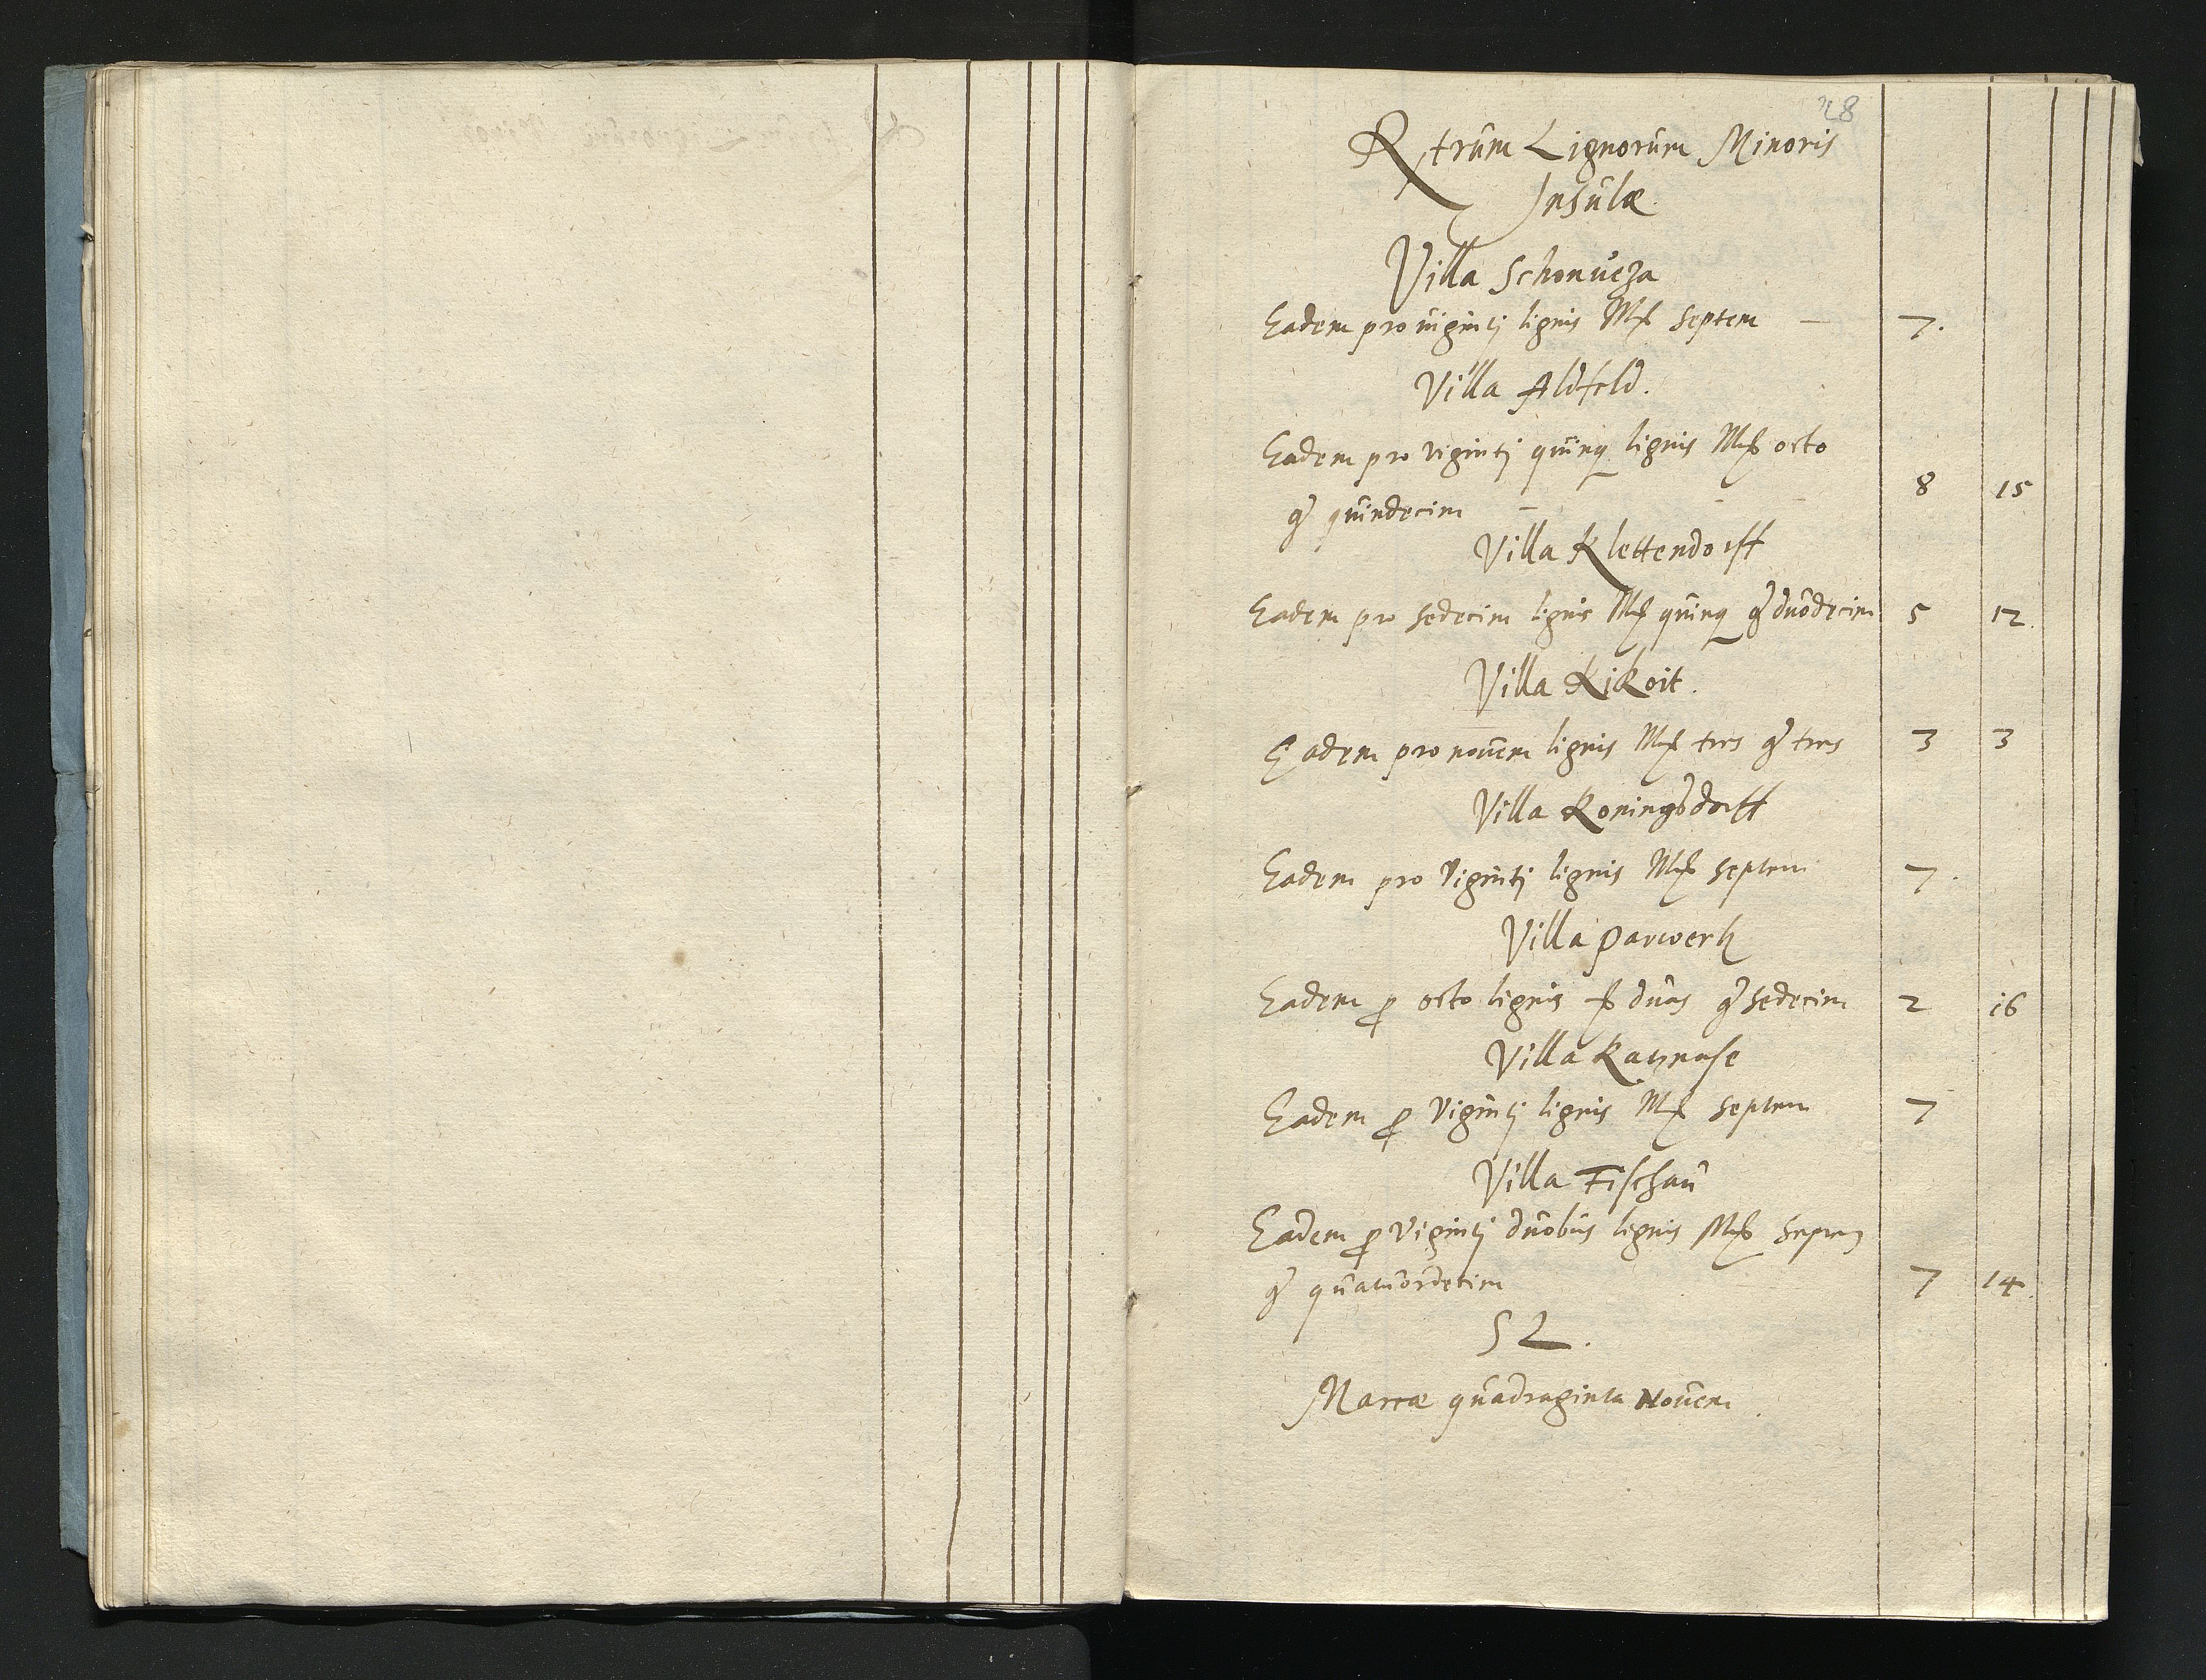 28
Rtrum Lignorum Minoris
Insulæ
Villa Schonueza
Eadem pro uiginti lignis Mꝶ Septem — 7.
Villa Aldfeld.
Eadem pro Viginti quinq lignis Mꝶ octo
gꝛ quindecim — 8 15
Villa Klettendorff
Eadem pro Sedecim lignis Mꝶ quinq gꝛ duodecim 5 12.
Villa KiKoit.
Eadem pro nouem lignis Mꝶ tres gꝛ tres 3 3
Villa Koningsdorff
Eadem pro Viginti lignis Mꝶ Septem 7.
Villa Parwerk
Eadem ꝓ octo lignis ꝶ duas gꝛ Sedecim 2 16
Villa Kaynase
Eadem ꝓ Viginti lignis Mꝶ Septem 7
Villa Fischau
Eadem ꝓ Viginti duobus lignis Mꝶ Septem
gꝛ quatuordecim 7 14.
S L.
Marcæ quadraginta Nouem.